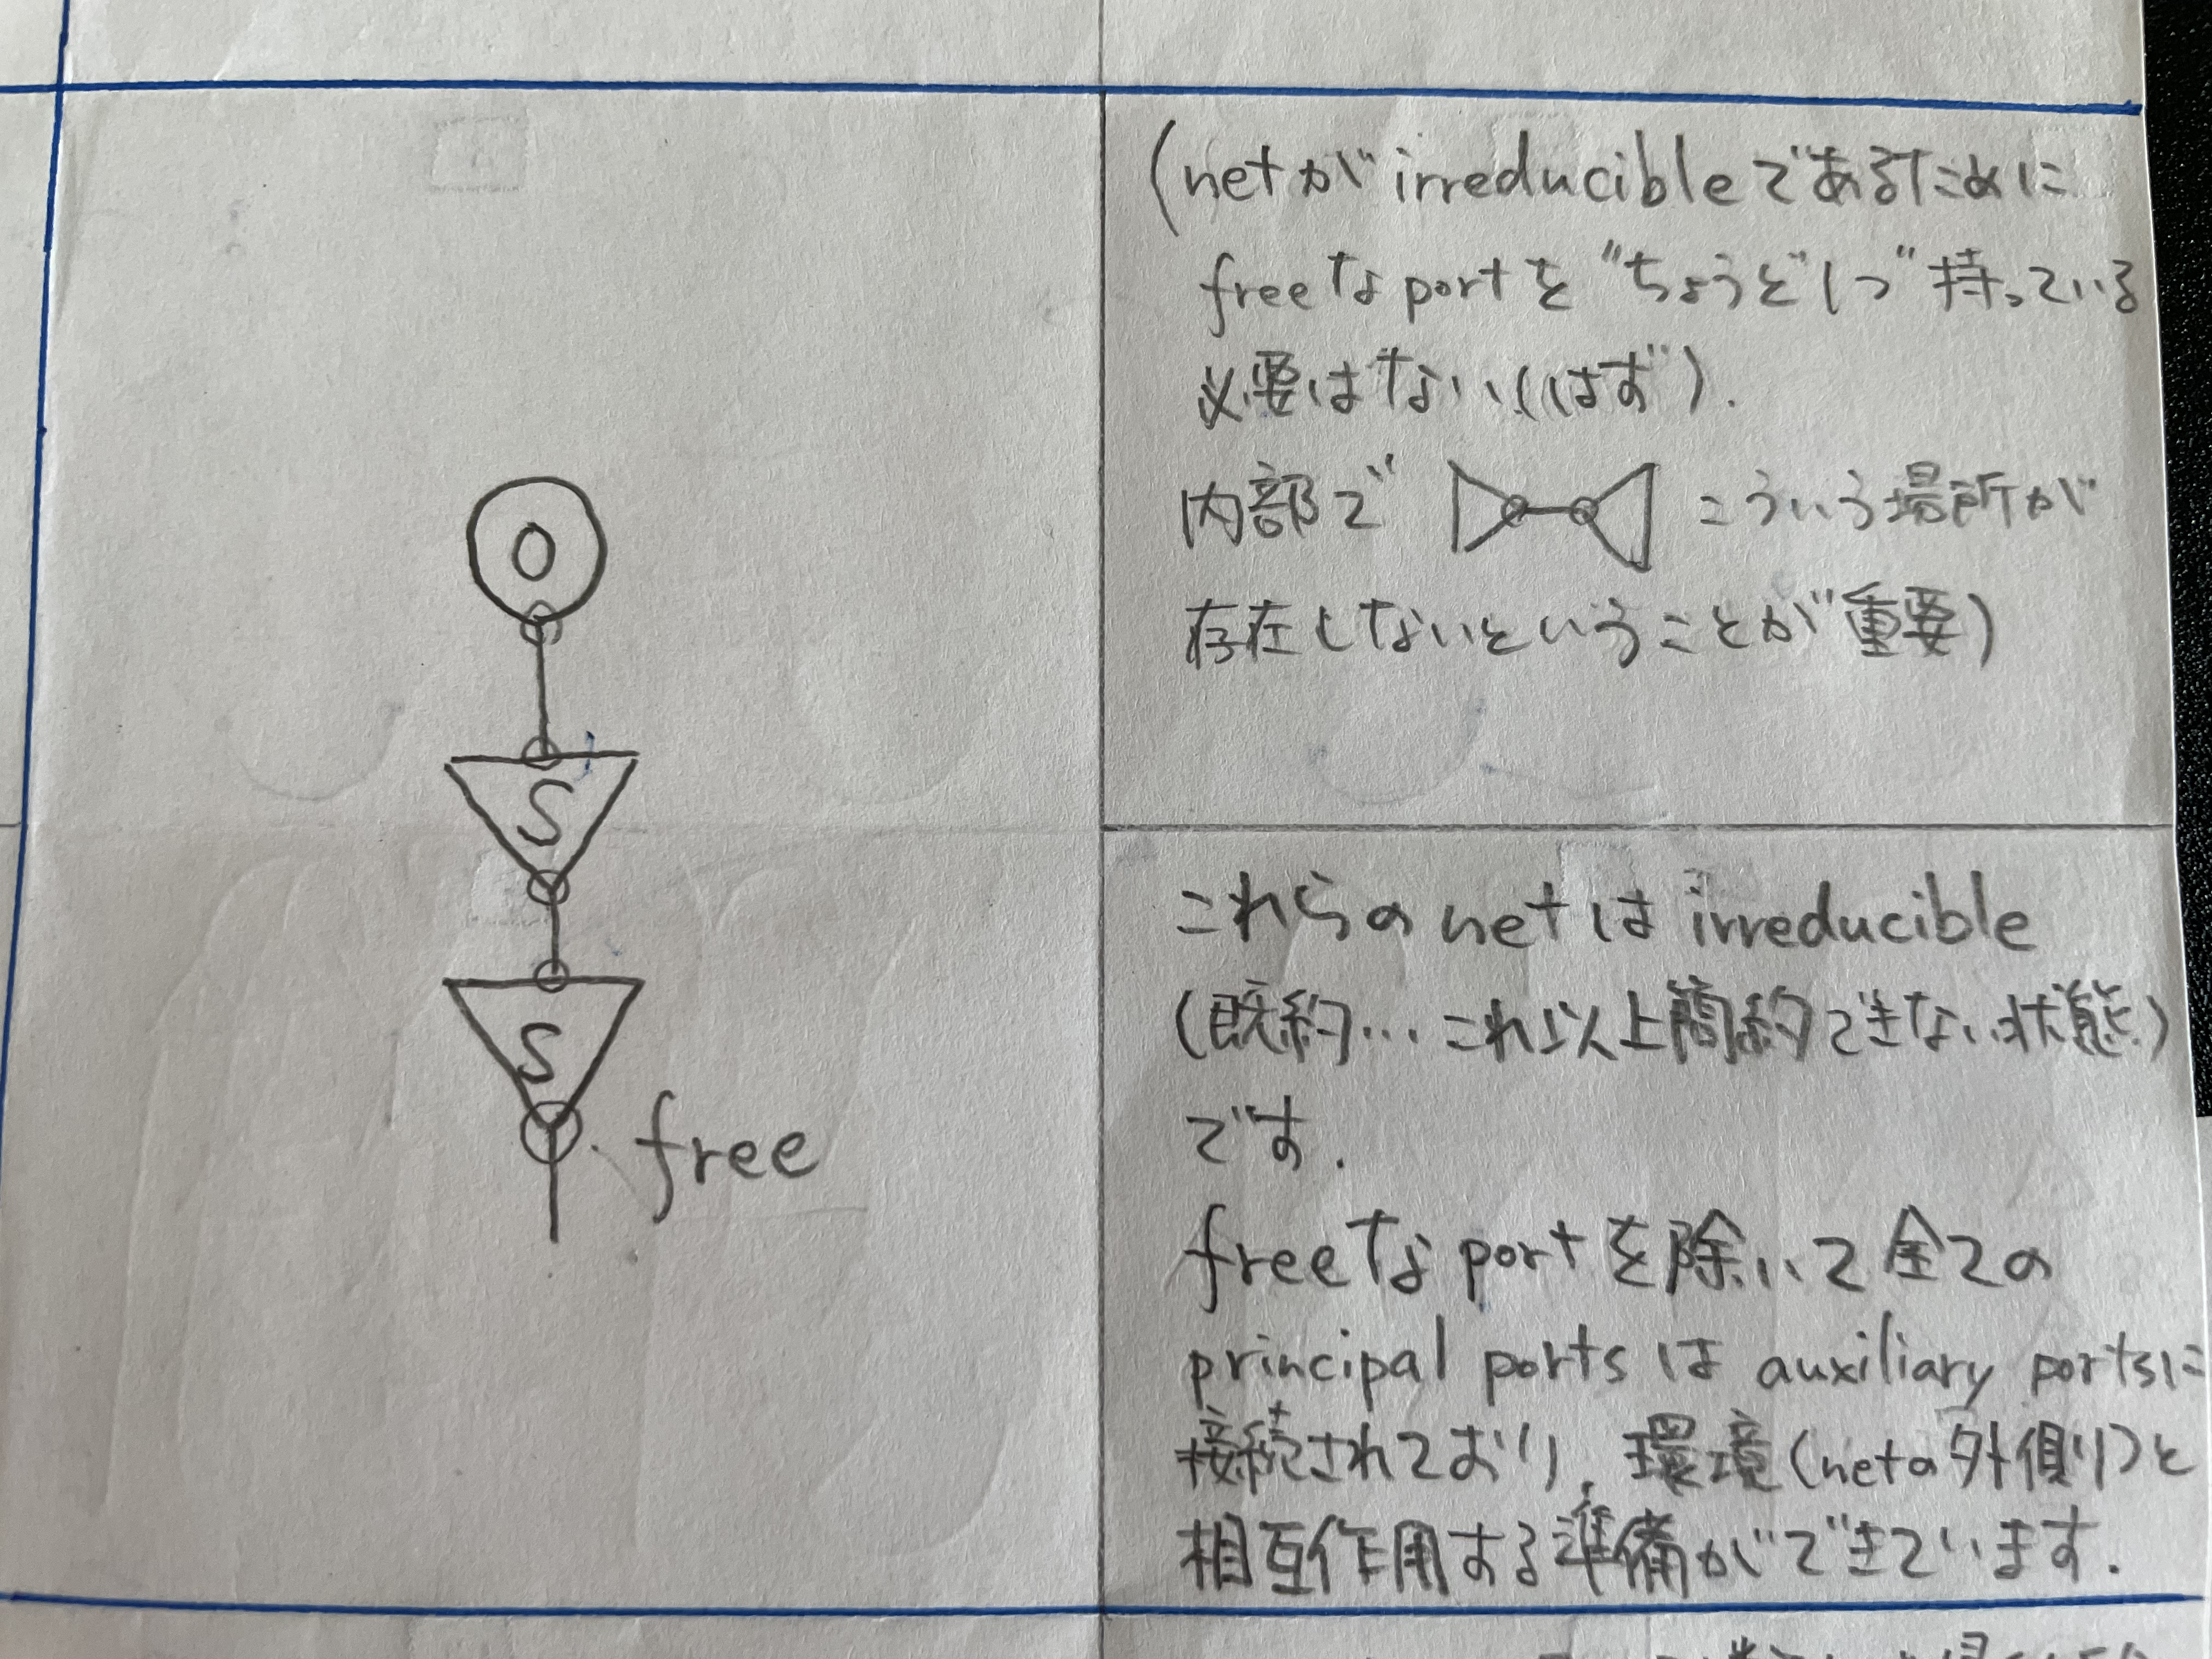 O
S
S
free
(netがirreducibleであるために
freeなportを"ちょうど1つ"持っている
必要はない(はず).
内部で こういう場所が
存在しないということが重要)
これらのnetはirreducible
(既約…これ以上簡約できない状態)
です.
freeなportを除いて全ての
principal portsはauxiliary portsに
接続されており,環境(netの外側)と
相互作用する準備ができています.